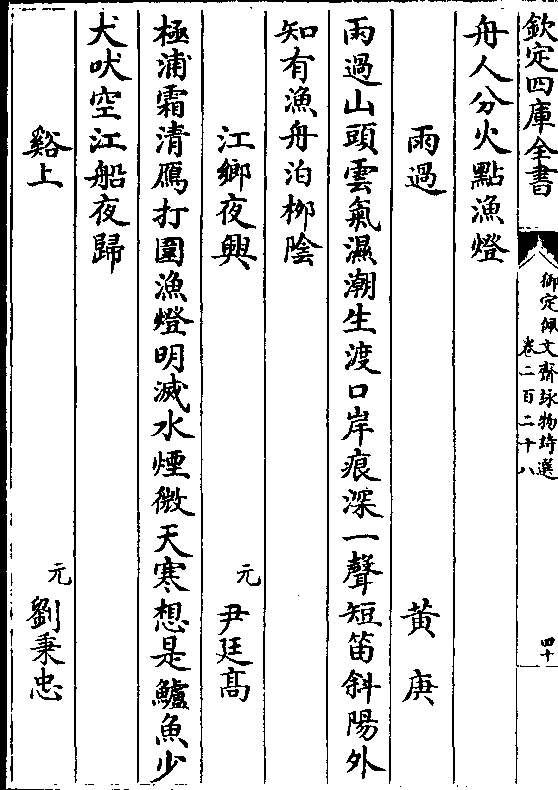 欽定四庫全書
御定佩文齋詠物詩選
卷二百二十八
四十
舟人分火點漁燈
雨過 黃庚
雨過山頭雲氣濕潮生渡口岸痕深一聲短笛斜陽外
知有漁舟泊柳陰
江鄉夜興 元 尹廷高
極浦霜清鴈打圍漁燈明滅水煙微天寒想是鱸魚少
犬吠空江船夜歸
谿上 元 劉秉忠